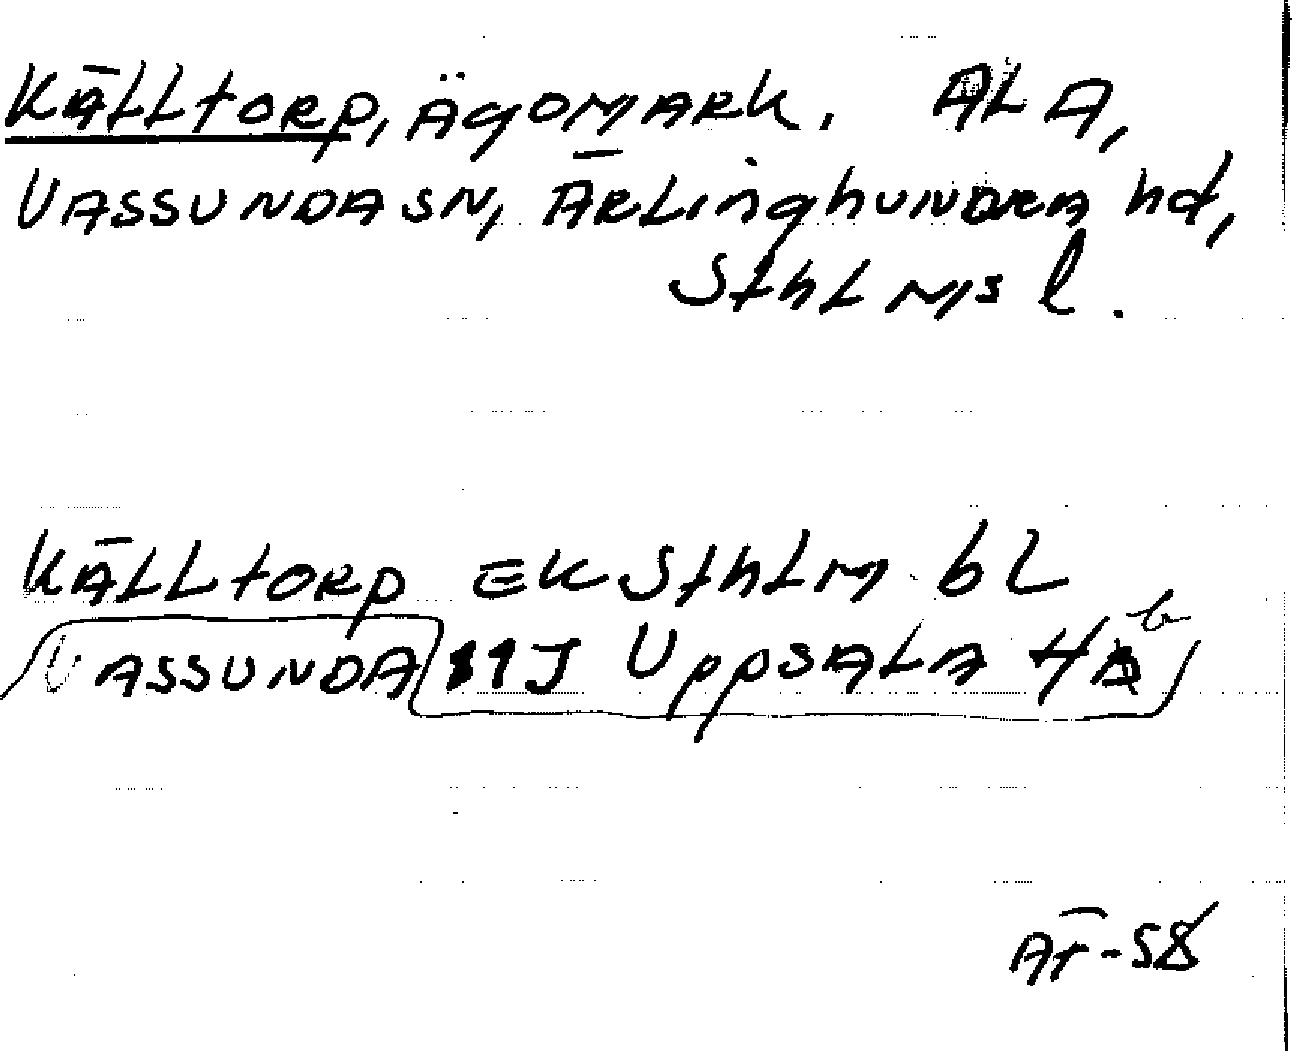 Källtorp, Ägomark. ALA,
VASSUNDA SN, Ärlinghundra hd,
Sthlms l.
Källtorp EK Sthlm bl
VASSUNDA 11J Uppsala 4 b
ÄT-58